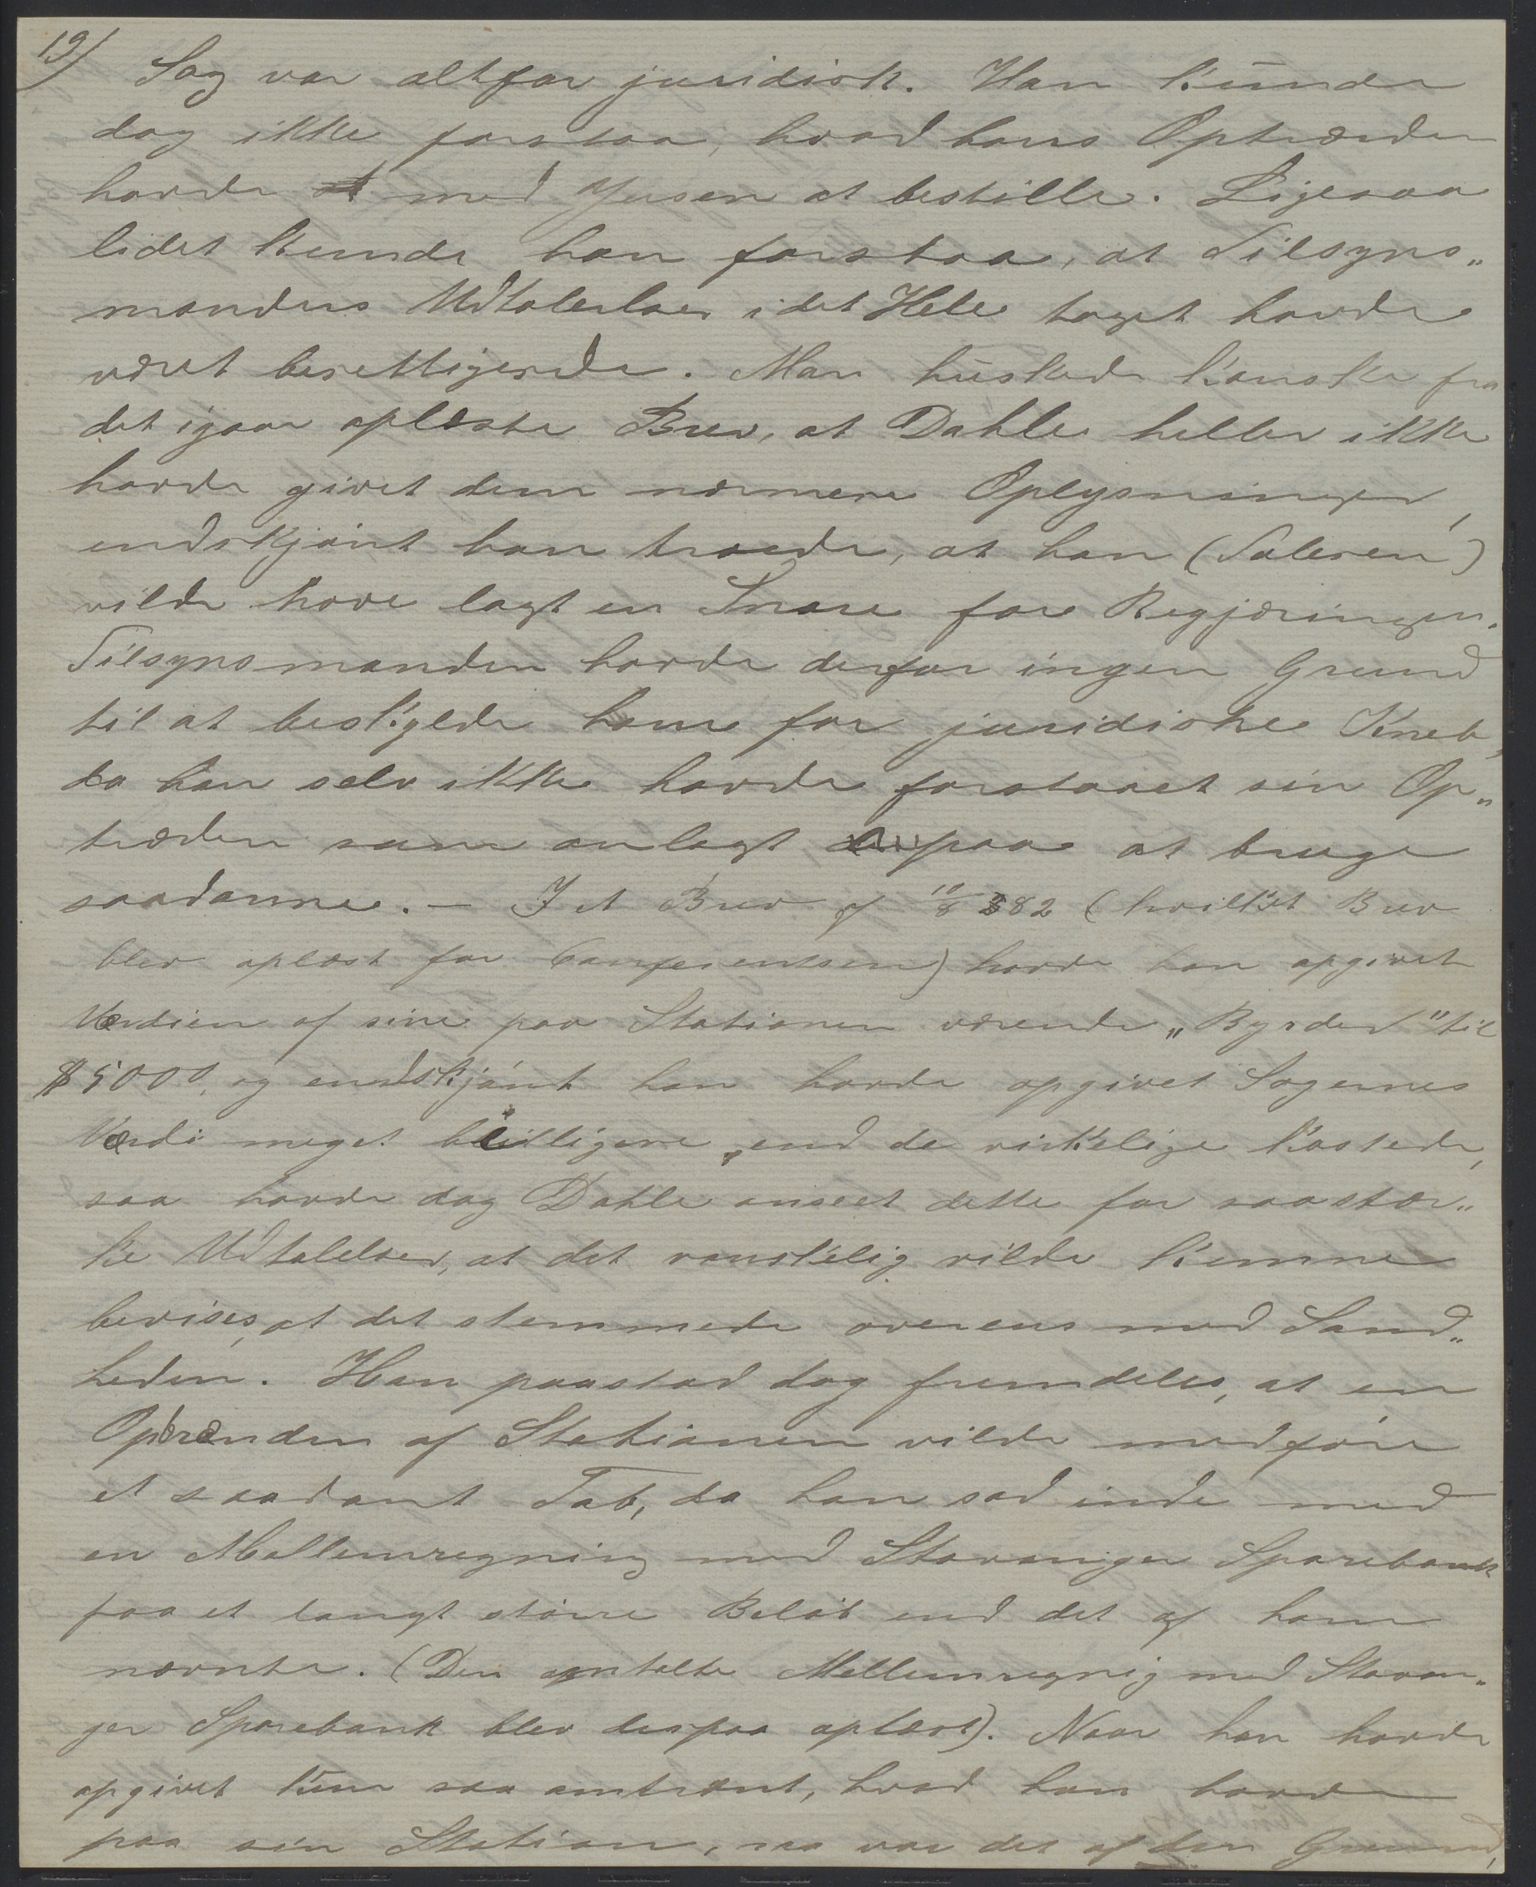 19)
Sag var altfor juridisk. Han kunde
dog ikke forstaa, hvad hans Optræden
havde med Jusen at bestille. Ligesaa
lidet kunde han forstaa, at Tilsyns„
mandens Udtalelser i det Hele taget havde
været berettigede. Man huskede kanske fra
det igaar oplæste Brev, at Dahle heller ikke
havde givet dem nærmere Oplysninger,
endskjønt han troede, at han (Taleren)
vilde have lagt en Snare for Regjeringen.
Tilsynsmanden havde derfor ingen Grund
til at beskylde ham for juridiske Kneb,
da han selv ikke havde forstaaet sin Op„
træden som anlagt paa at bruge
saadanne. – I et Brev af 10/8 82 (hvilket Brev
blev oplæst for Conferentsen) havde han opgivet
Værdien af sine paa Stationen værende „Byrder“ til
$5000, og endskjønt han havde opgivet Sagernes
Værdi meget billigere, end de virkelige kostede,
saa havde dog Dahle anseet dette for saa stær„
ke Udtalelser, at det vanskelig vilde kunne
bevises, at det stemmede overens med Sand„
heden. Han paastod dog fremdeles, at en
Opbrænden af Stationen vilde medføre
et saadant Tab, da han sad inde med
en Mellemregning med Stavanger Sparebank
paa et langt større Beløb end det af ham
nævnte. (Den omtalte Mellemregnig med Stavan„
ger Sparebank blev derpaa oplæst). Naar han havde
opgivet kun saa omtrent, hvad han havde
paa sin Station, saa var det af den Grund,